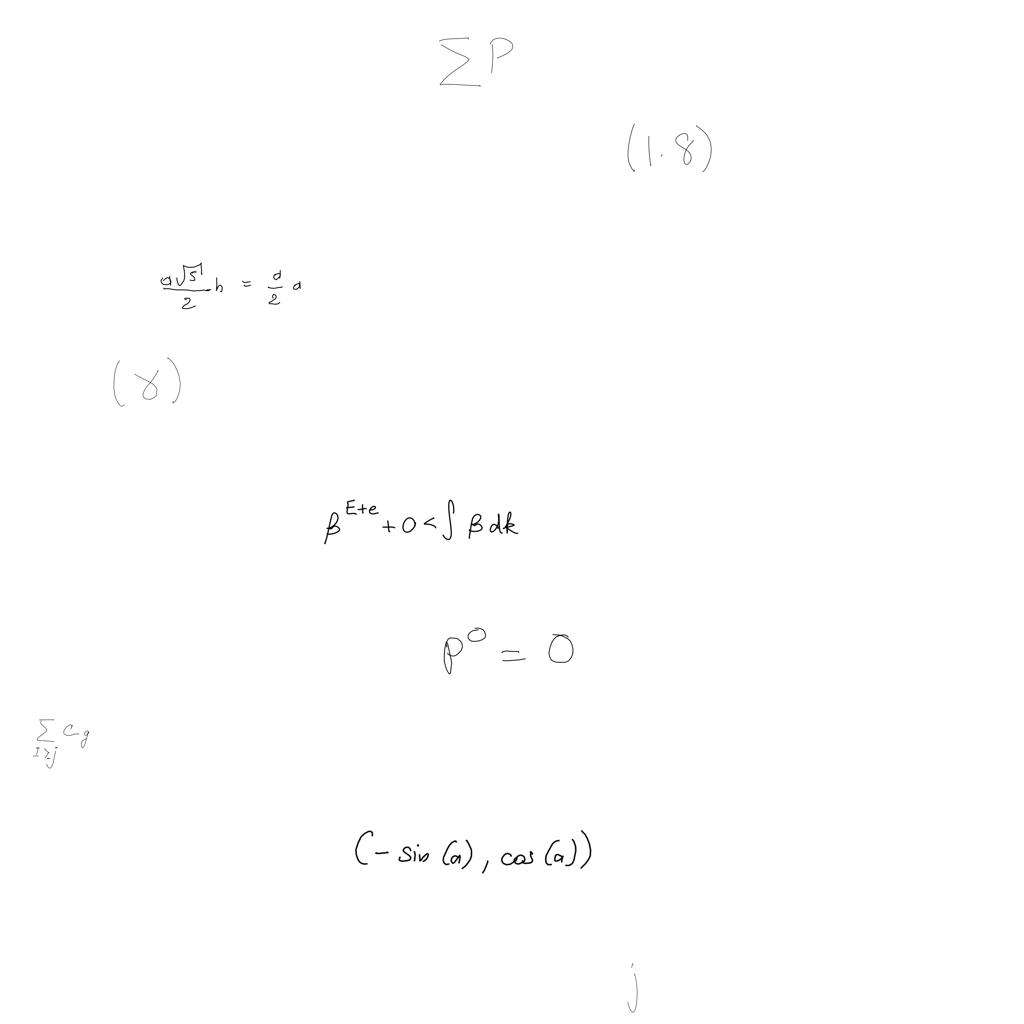 ∑P
(1.8)
\frac{a\sqrt{5}}{2}h = \frac{a}{2}a
(γ)
β^{E+e}+0<∫βdk
p^0=0
∑_{I≥j} c_g
(-sin(a), cos(a))
j